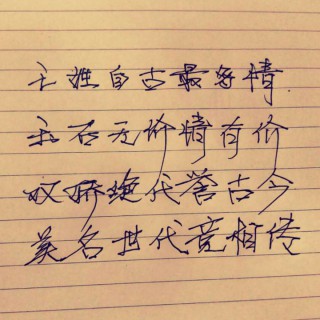 王姓自古最多情
和否无价情有价
双娇绝代誉古今
美名世代竞相传